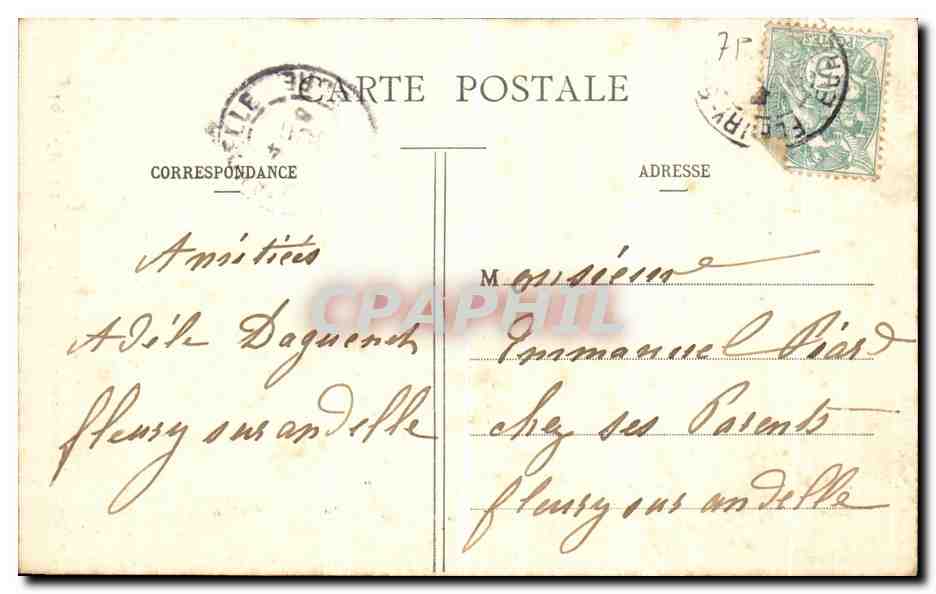 75
CARTE POSTALE
CORRESPONDANCE
ADRESSE
Amitiés
Adèle Daguenet
fleury sur andelle
Monsieur
Emmanuel Piard
chez ses Parents
fleury sur andelle
CPAPHIL
POSTES
EURE
ELLE